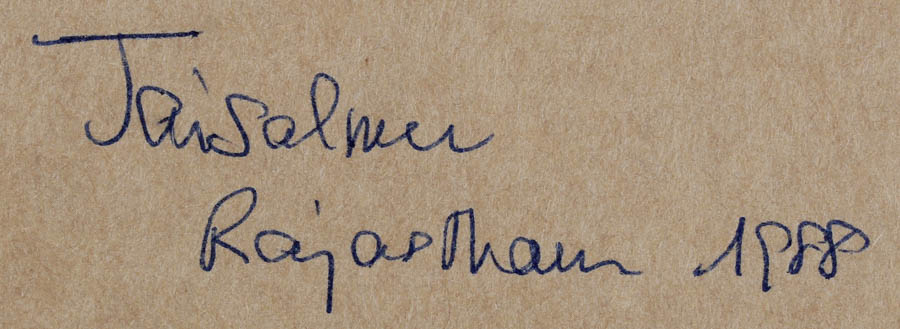 Jaisalmer
Rajasthan 1988